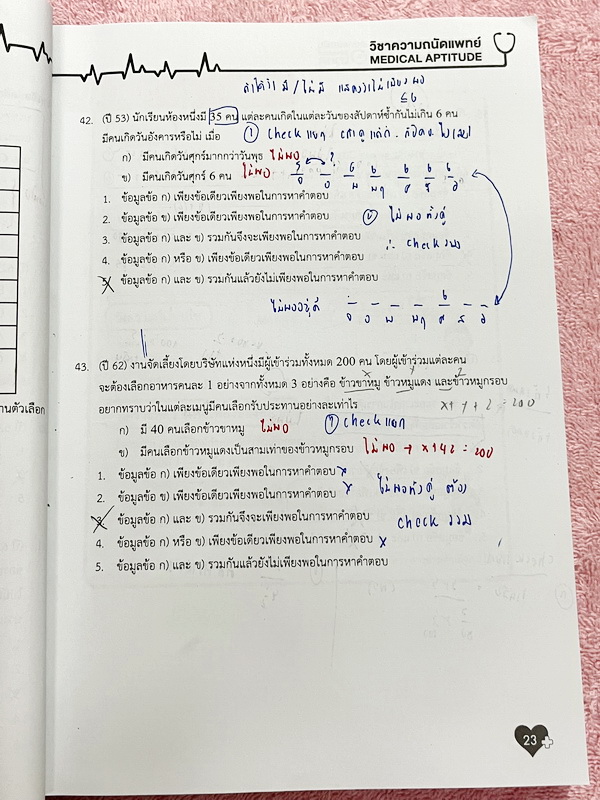 วิชาความถนัดแพทย์
MEDICAL APTITUDE
42. (ปี 53) นักเรียนห้องหนึ่งมี 35 คน แต่ละคนเกิดในแต่ละวันของสัปดาห์ซ้ำกันไม่เกิน 6 คน
มีคนเกิดวันอังคารหรือไม่ เมื่อ
① check แยก
ก) มีคนเกิดวันศุกร์มากกว่าวันพุธ ไม่พอ
ข) มีคนเกิดวันศุกร์ 6 คน ไม่พอ
จ อ พ พฤ ศ ส อ
1. ข้อมูลข้อ ก) เพียงข้อเดียวเพียงพอในการหาคำตอบ
2. ข้อมูลข้อ ข) เพียงข้อเดียวเพียงพอในการหาคำตอบ ② ไม่พอทั้งคู่
3. ข้อมูลข้อ ก) และ ข) รวมกันจึงจะเพียงพอในการหาคำตอบ ∴ check รวม
4. ข้อมูลข้อ ก) หรือ ข) เพียงข้อเดียวเพียงพอในการหาคำตอบ
5. ข้อมูลข้อ ก) และ ข) รวมกันแล้วยังไม่เพียงพอในการหาคำตอบ
ไม่พออยู่ดี จ อ พ พฤ ศ ส อ
43. (ปี 62) งานจัดเลี้ยงโดยบริษัทแห่งหนึ่งมีผู้เข้าร่วมทั้งหมด 200 คน โดยผู้เข้าร่วมแต่ละคน
จะต้องเลือกอาหารคนละ 1 อย่างจากทั้งหมด 3 อย่างคือ ข้าวขาหมู ข้าวหมูแดง และข้าวหมูกรอบ
อยากทราบว่าในแต่ละเมนูมีคนเลือกรับประทานอย่างละเท่าไร x+y+z = 200
ก) มี 40 คนเลือกข้าวขาหมู ไม่พอ ① check แยก
ข) มีคนเลือกข้าวหมูแดงเป็นสามเท่าของข้าวหมูกรอบ ไม่พอ → x+4z = 200
1. ข้อมูลข้อ ก) เพียงข้อเดียวเพียงพอในการหาคำตอบ x
2. ข้อมูลข้อ ข) เพียงข้อเดียวเพียงพอในการหาคำตอบ x ไม่พอทั้งคู่ ต้อง
3. ข้อมูลข้อ ก) และ ข) รวมกันจึงจะเพียงพอในการหาคำตอบ check รวม
4. ข้อมูลข้อ ก) หรือ ข) เพียงข้อเดียวเพียงพอในการหาคำตอบ x
5. ข้อมูลข้อ ก) และ ข) รวมกันแล้วยังไม่เพียงพอในการหาคำตอบ
านตัวเลือก
23